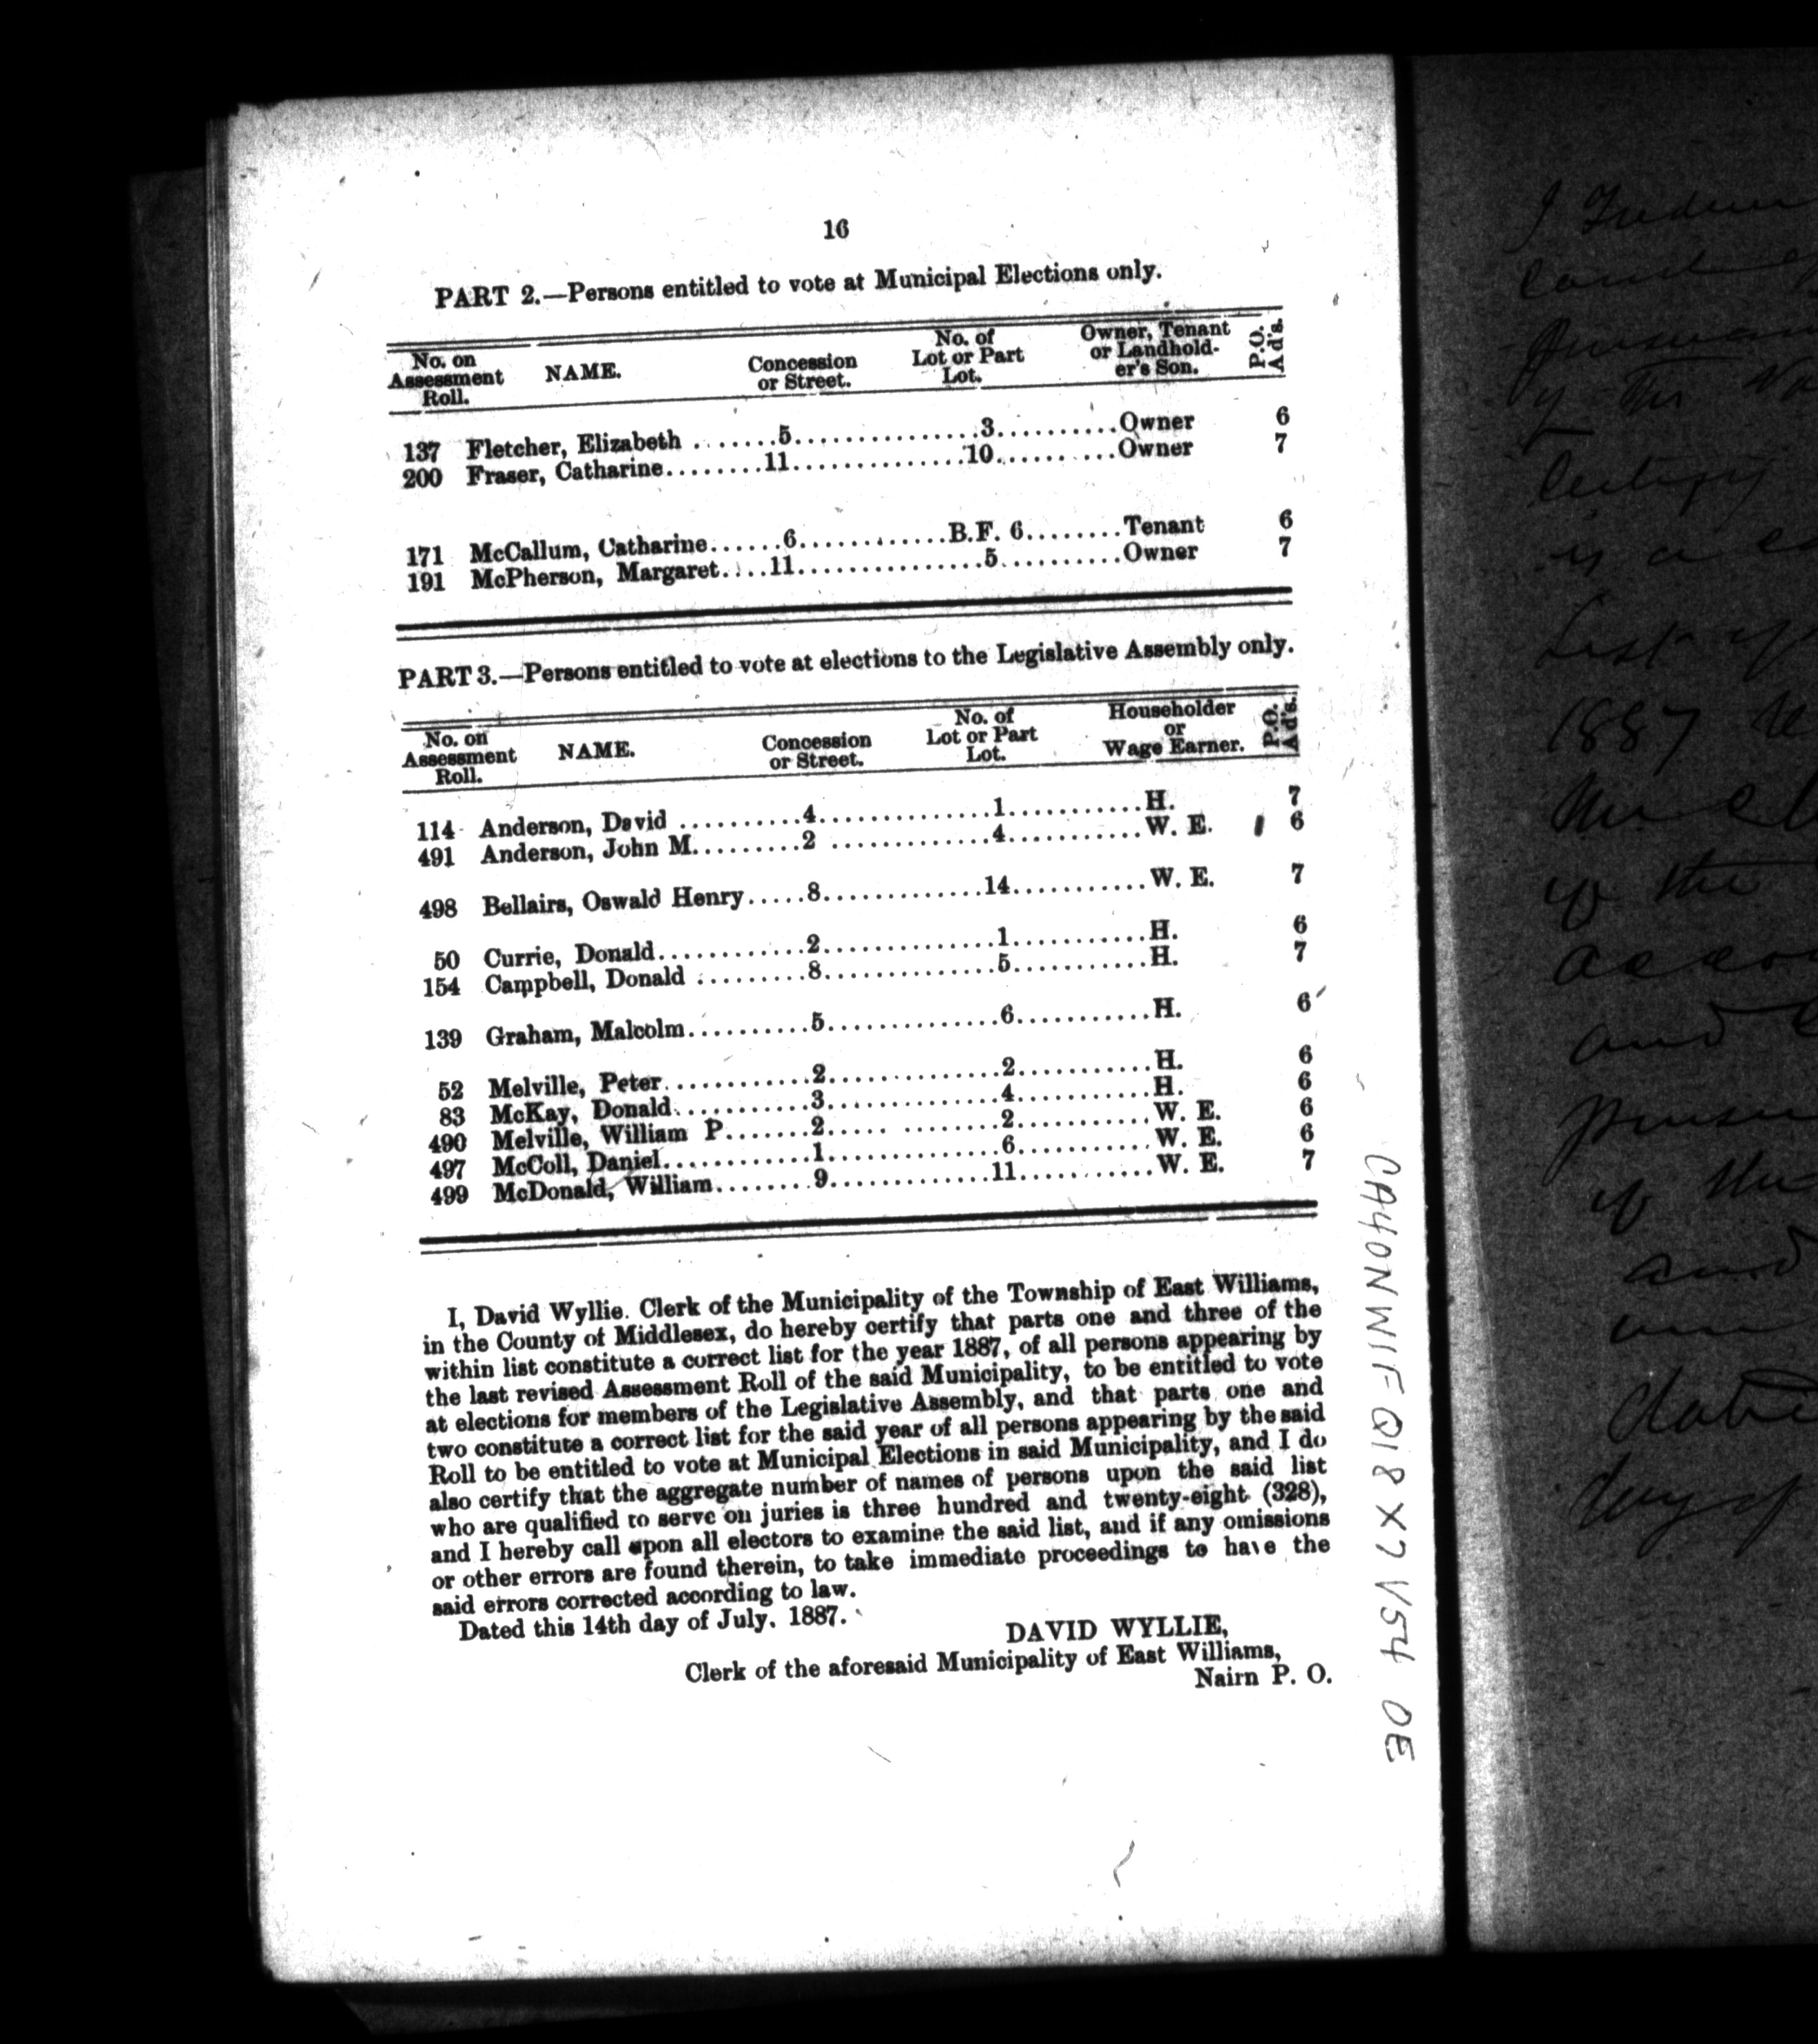 16
PART 2.—Persons entitled to vote at Municipal Elections only.
No. on Assessment Roll. NAME. Concession or Street. No. of Lot or Part Lot. Owner, Tenant or Landholder's Son. P.O. Ad's.
137 Fletcher, Elizabeth .......5................3..........Owner 6
200 Fraser, Catharine........11...............10..........Owner 7
171 McCallum, Catharine......6.............B.F. 6........Tenant 6
191 McPherson, Margaret....11................5..........Owner 7
PART 3.—Persons entitled to vote at elections to the Legislative Assembly only.
No. on Assessment Roll. NAME. Concession or Street. No. of Lot or Part Lot. Householder or Wage Earner. P.O. Ad's.
114 Anderson, David ..........4...............1...........H. 7
491 Anderson, John M.........2 ..............4...........W. E. 6
498 Bellairs, Oswald Henry.....8..............14...........W. E. 7
50 Currie, Donald............2...............1...........H. 6
154 Campbell, Donald :........8...............5...........H. 7
139 Graham, Malcolm..........5...............6...........H. 6
52 Melville, Peter............2...............2...........H. 6
83 McKay, Donald............3...............4...........H. 6
490 Melville, William P.......2..... ........2...........W. E. 6
497 McColl, Daniel............1...............6...........W. E. 6
499 McDonald, William........9..............11...........W. E. 7
I, David Wyllie. Clerk of the Municipality of the Township of East Williams,
in the County of Middlesex, do hereby certify that parts one and three of the
within list constitute a correct list for the year 1887, of all persons appearing by
the last revised Assessment Roll of the said Municipality, to be entitled to vote
at elections for members of the Legislative Assembly, and that parts one and
two constitute a correct list for the said year of all persons appearing by the said
Roll to be entitled to vote at Municipal Elections in said Municipality, and I do
also certify that the aggregate number of names of persons upon the said list
who are qualified to serve on juries is three hundred and twenty-eight (328),
and I hereby call upon all electors to examine the said list, and if any omissions
or other errors are found therein, to take immediate proceedings to have the
said errors corrected according to law.
Dated this 14th day of July. 1887.
DAVID WYLLIE,
Clerk of the aforesaid Municipality of East Williams,
Nairn P. O.
CA4ON WIF Q18 X7 V54 OE
I
by the
certify
is a
List of
1887
the
of the
and
of the
and